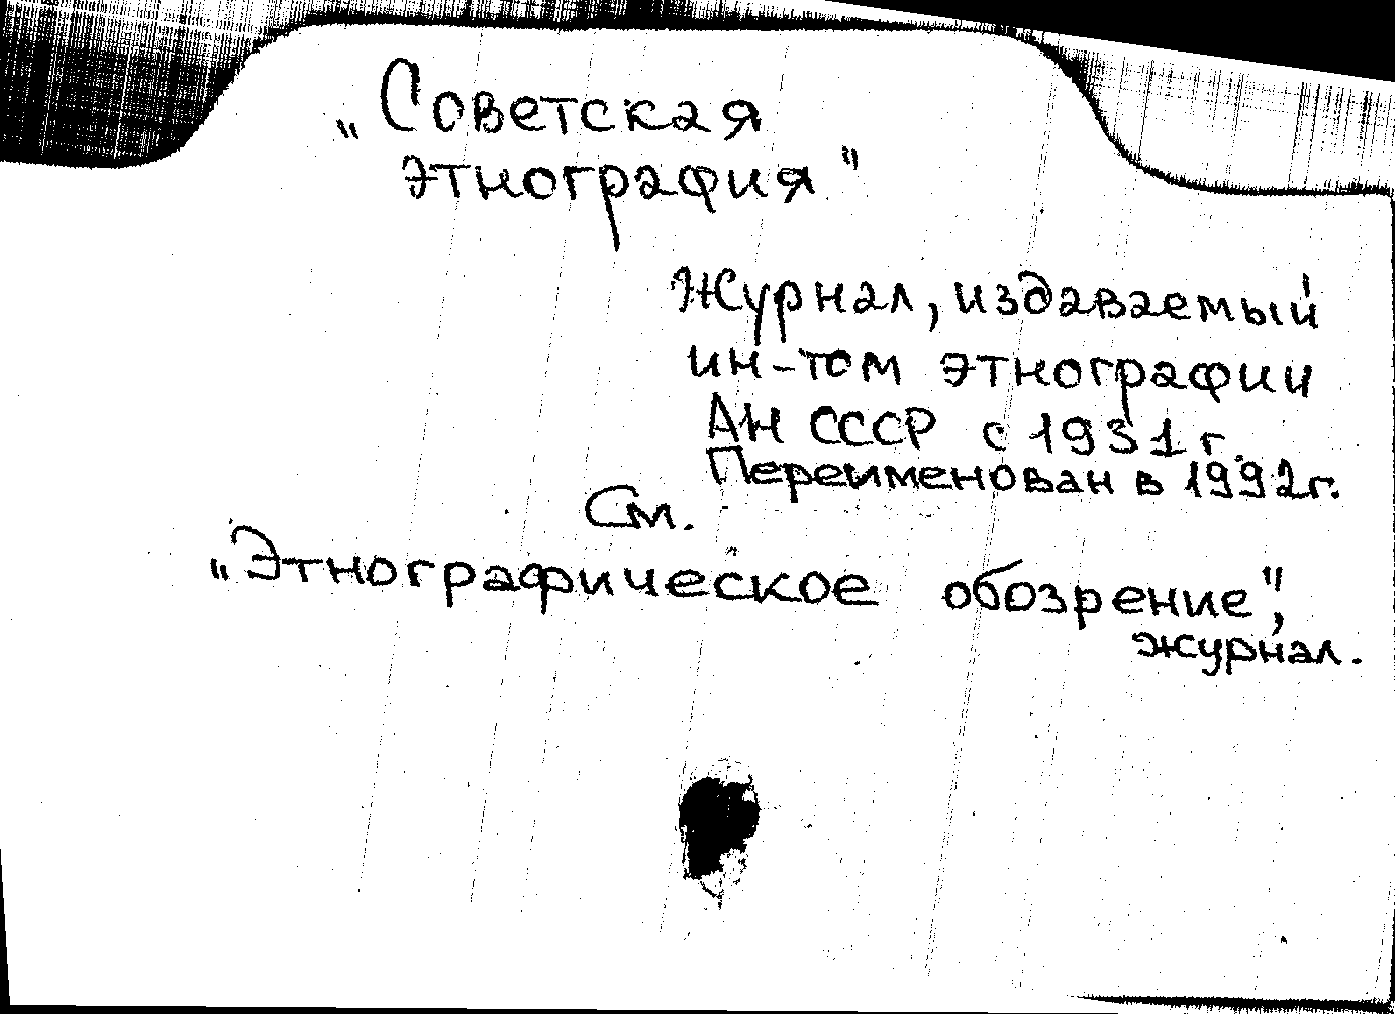 „Советская
этнография"
Журнал, издаваемый
ин-том этнографии
АН СССР с 1931 г.
Переименован в 1992г.
См.
„Этнографическое обозрение",
журнал.